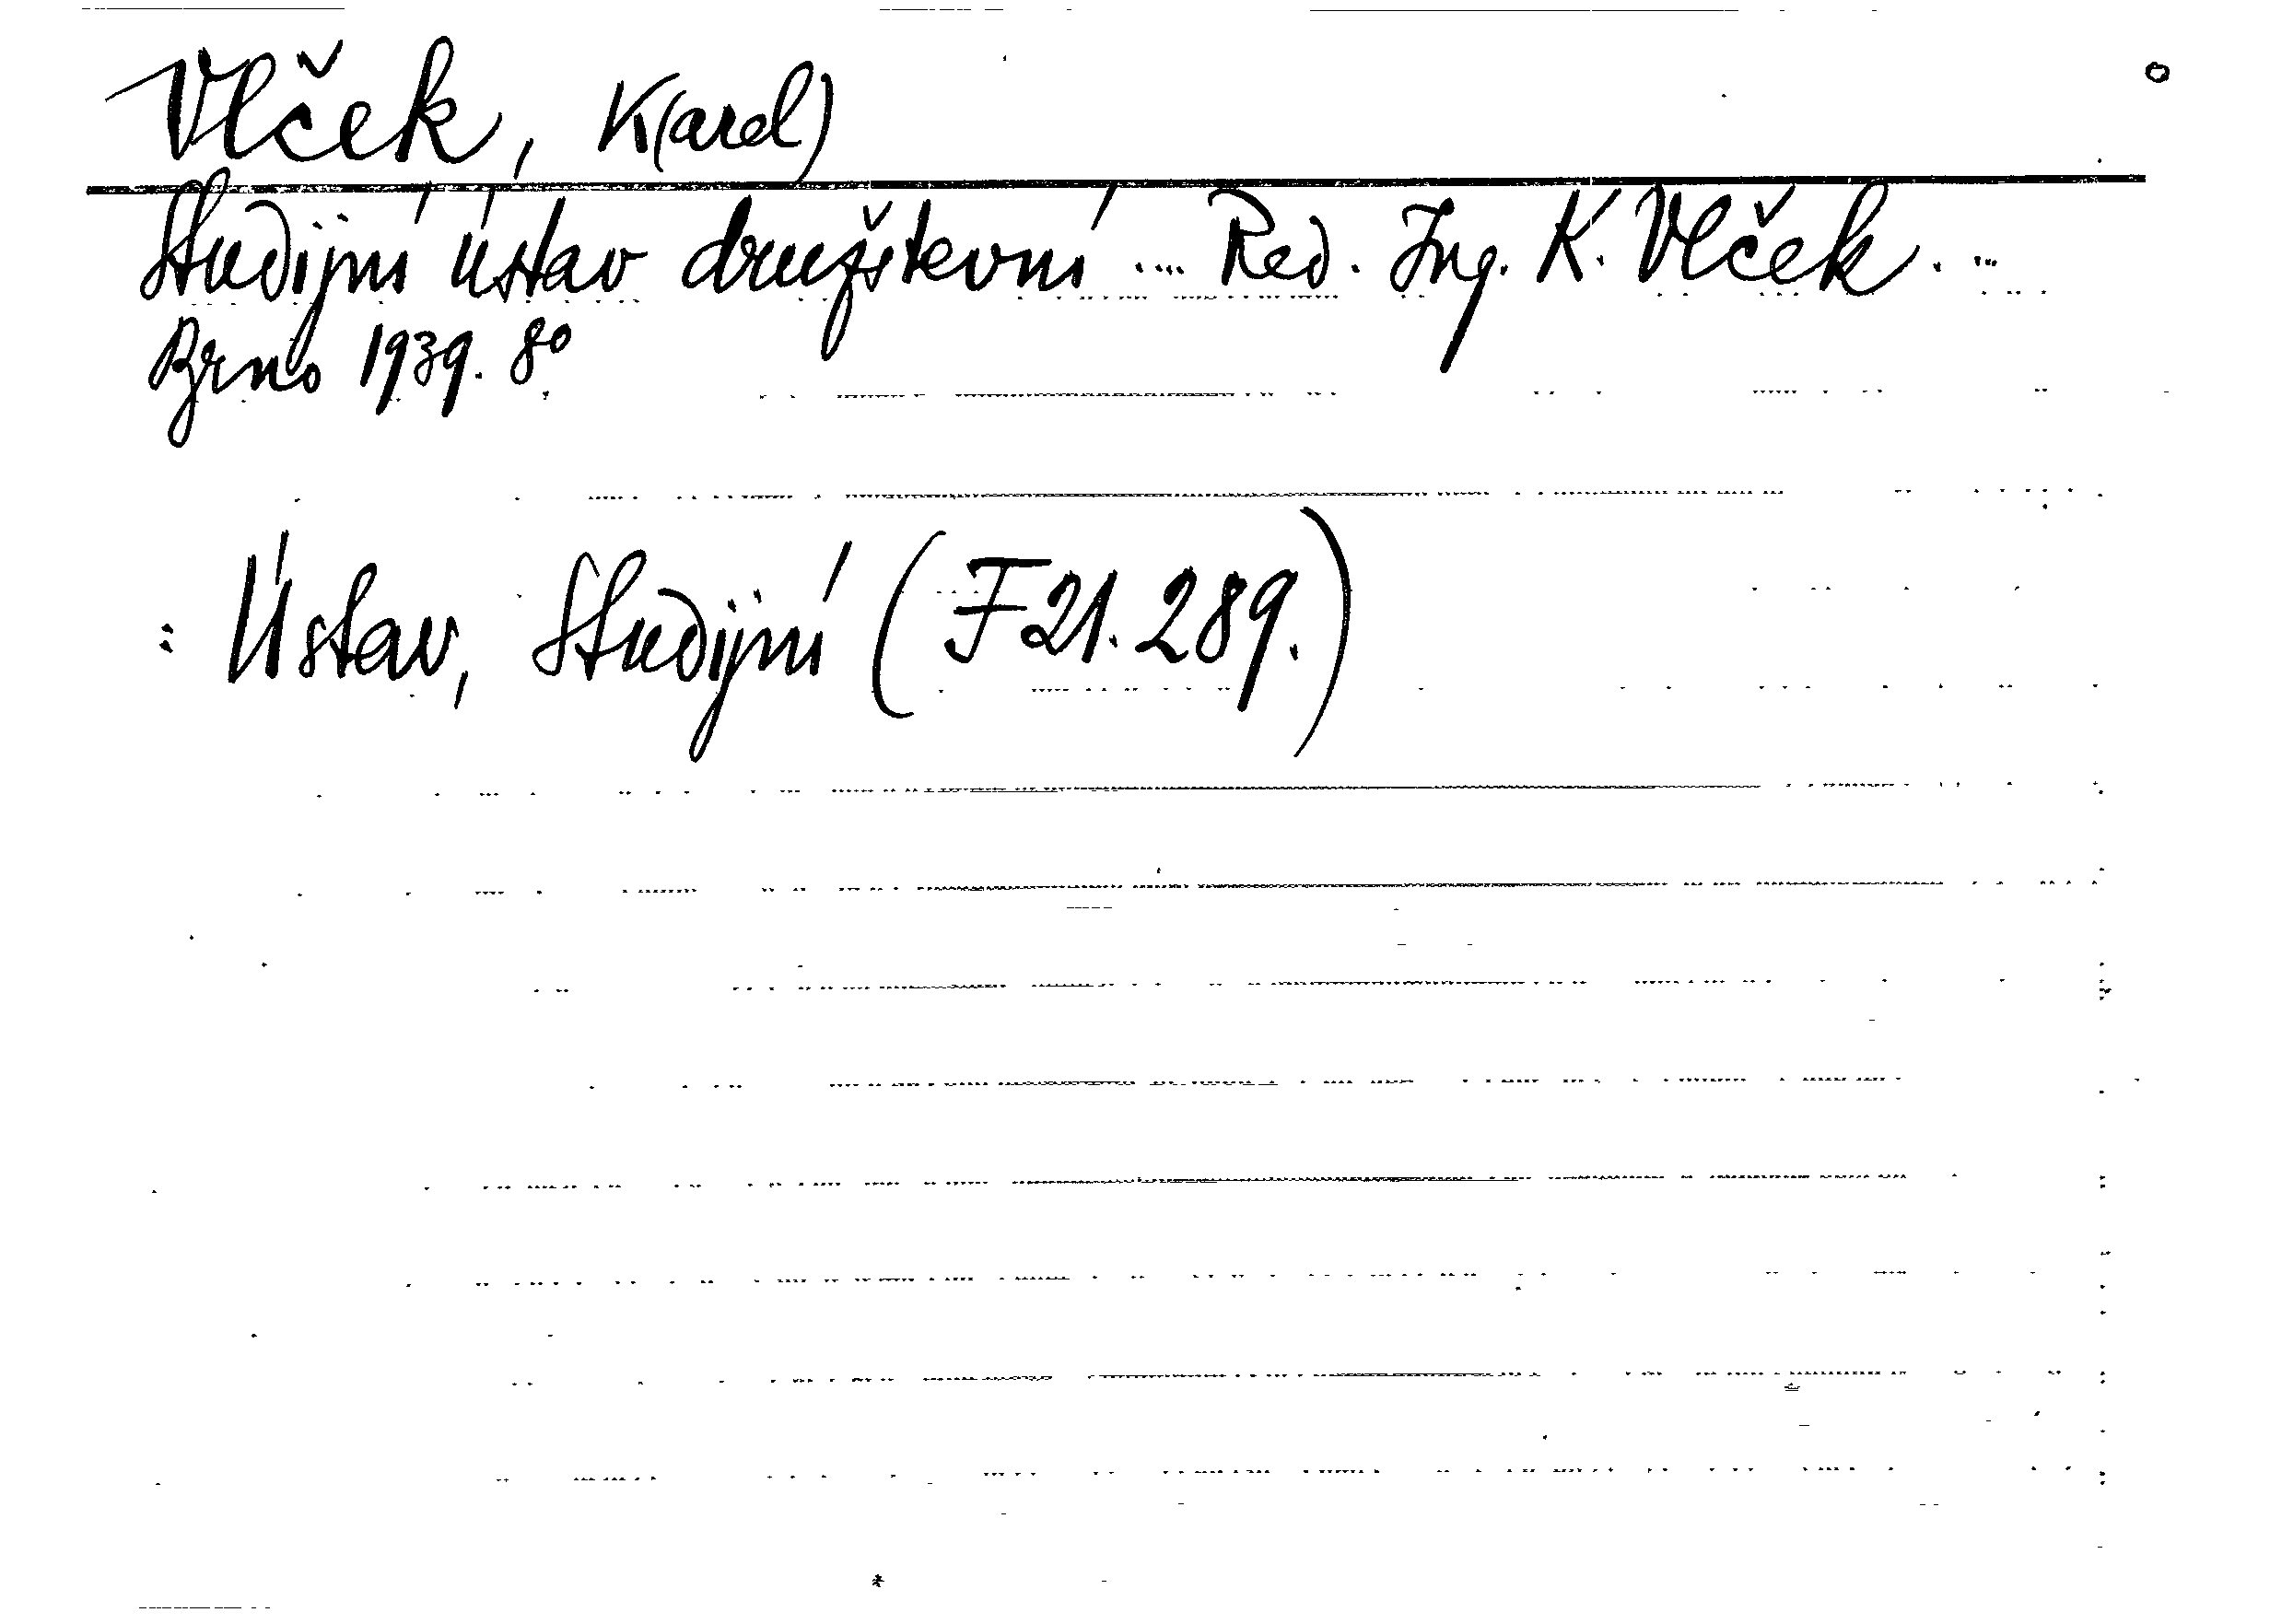 Vlček, K(arel)
Studijní ústav družstevní .... Red. Ing. K. Vlček. ...
Brno 1939. 8°
: Ústav, Studijní (F 21.289.)